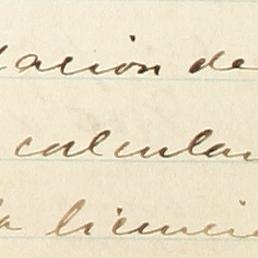 lación de
calcular
la licencia